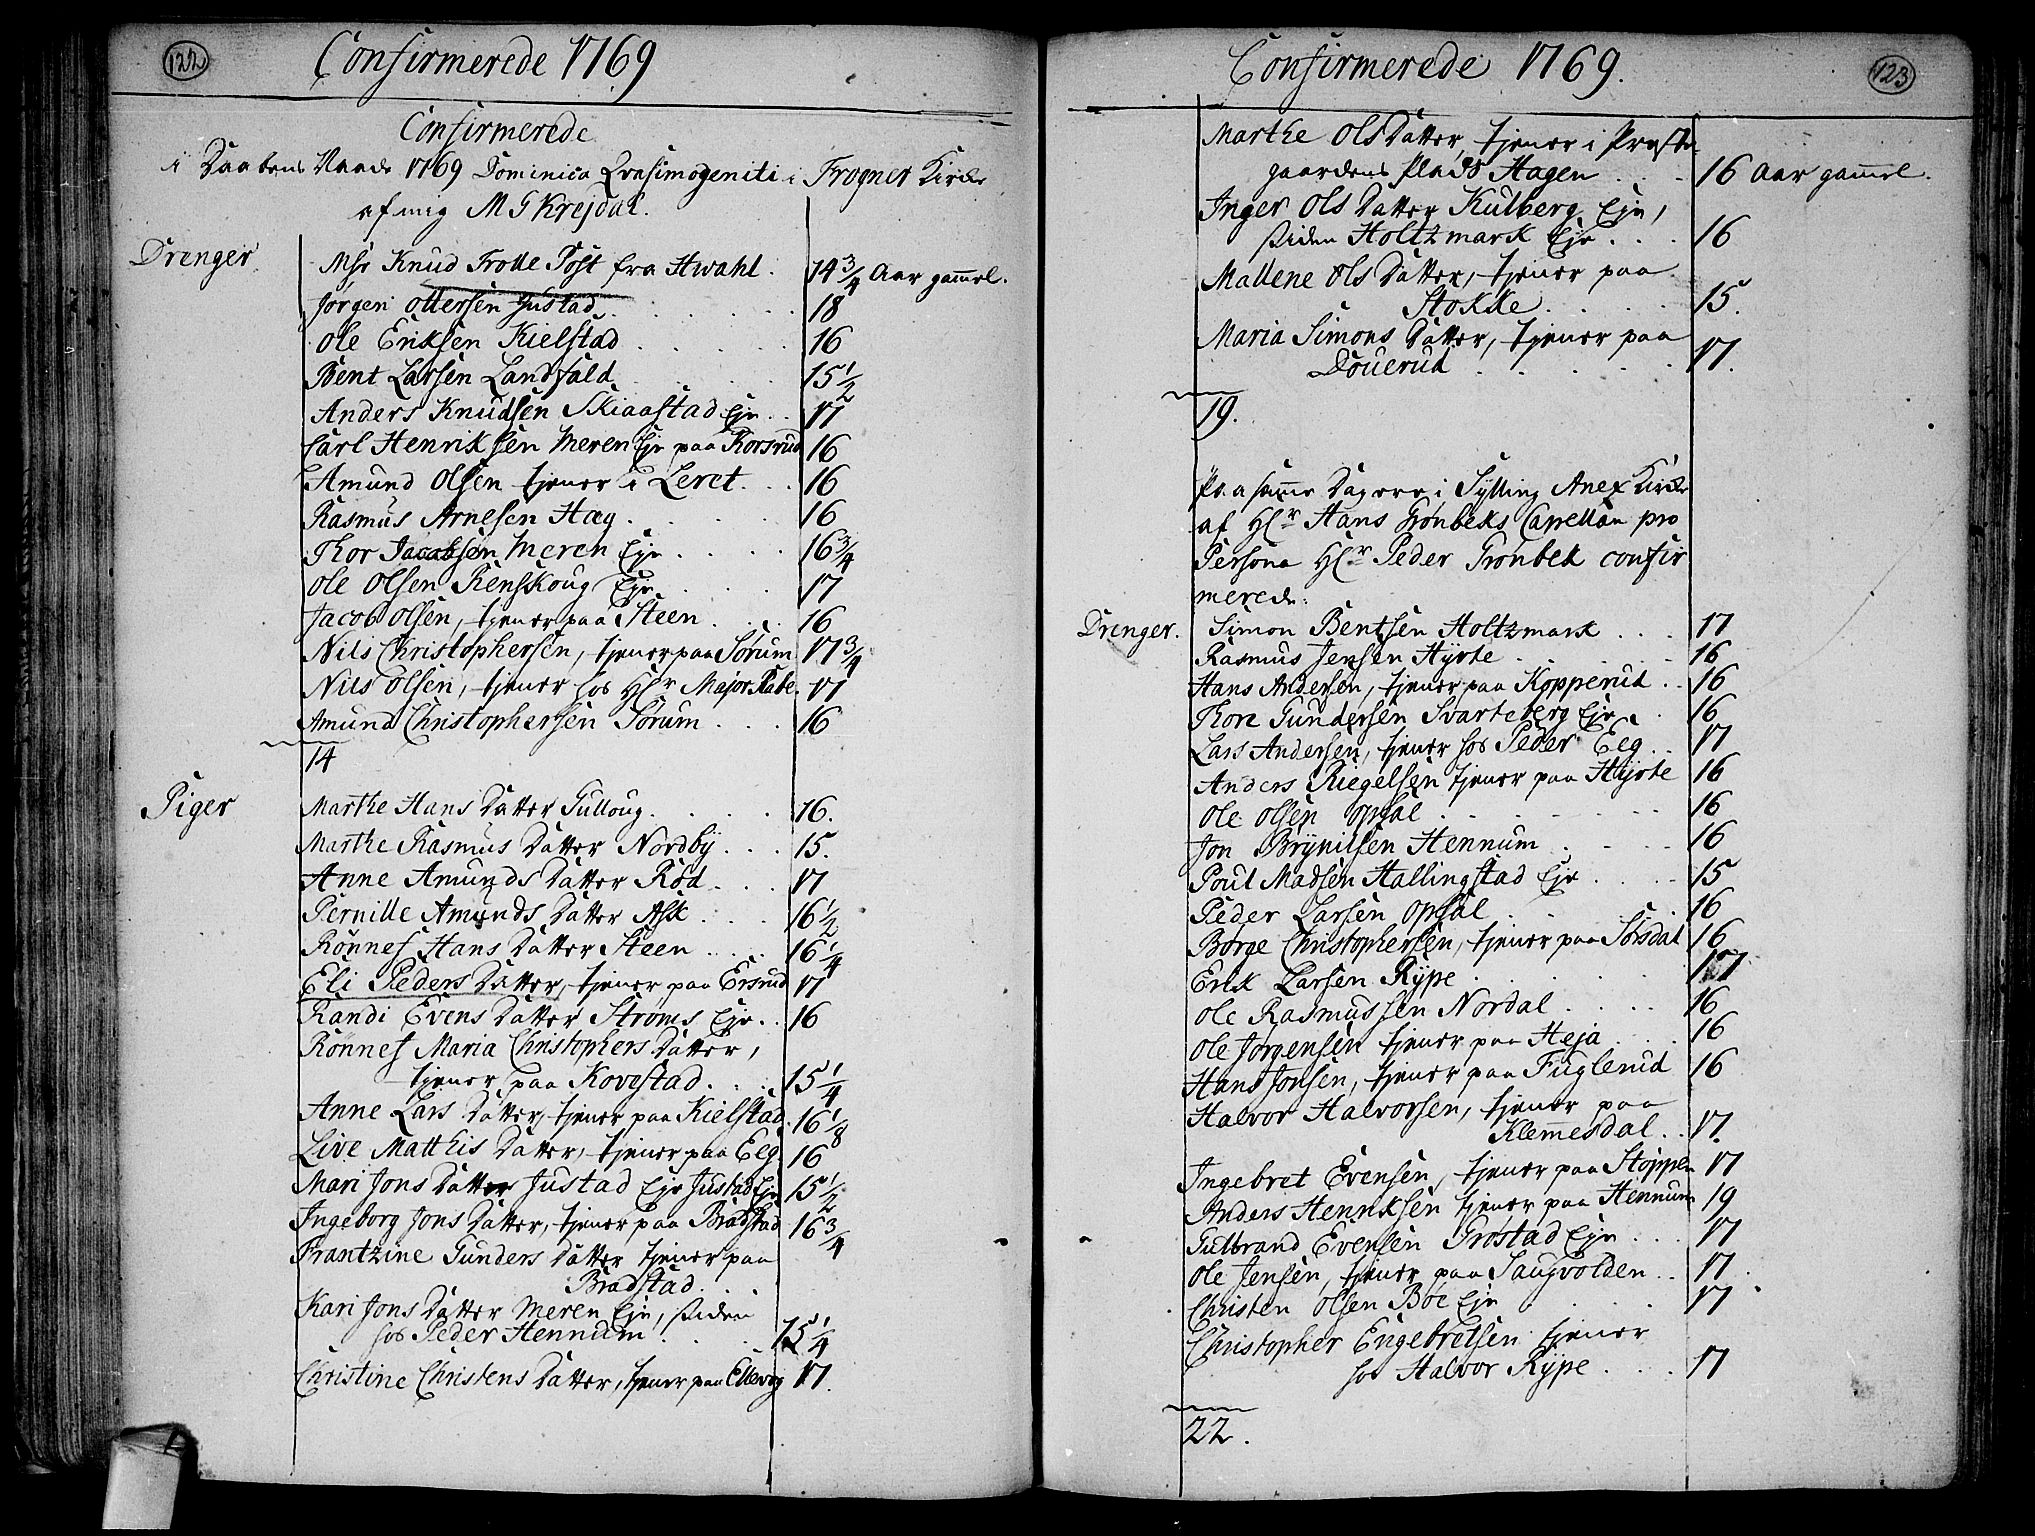 122
Confirmerede 1769
Confirmerede
i Daabens Naade 1769 Dominica Qvasimogeniti i Frogner Kirke
af mig M G Krejdal.
Drenger
Msr Knud Trolle Post fra Hwahl. 14 3/4 Aar gam̄el.
Jørgen Ottersen Gustad 18
Ole Eriksen Kielstad 16
Bent Larsen Landfald 15 1/2
Anders Knudsen Skiaastad Eje 17
Carl Henriksen Meren Eje paa Korsrud 16
Amund Olsen tjener i Leret. 16
Rasmus Arnesen Hæg. 16
Thor Jacobsen Meren Eje 16 3/4
Ole Olsen Renskoug Eje 17
Jacob Olsen, tjener paa Steen 16
Nils Christophersen, tjener paa Sørum 17 3/4
Nils Olsen, tjener hos Hr Major Rabe. 17
Amund Christophersen Sørum 16
14
Piger
Marthe Hans Datter Gulloug. 16.
Marthe Rasmus Datter Nordby 15.
Anne Amunds Datter Rød 17
Pernille Amunds Datter Ask 16 1/2
Rønnef Hans Datter Steen 16 1/4
Eli Peders Datter, tjener paa Ersrud 17
Randi Evens Datter Strøms Eje 16
Rønnef Maria Christophers Datter,
tjener paa Kovestad. 15 1/4
Anne Lars Datter, tjener paa Kielstad. 16 1/8
Live Matthis Datter, tjener paa Eeg 16
Mari Jons Datter Justad Eje Justad Eje 15 1/2
Ingeborg Jons Datter, tjener paa Bradstad 16 3/4
Frantzine Gunders Datter tjener paa
Bradstad.
Kari Jons Datter Meren Eje, siden
hos Peder Hennum. 15 1/4
Christine Christens Datter, tjener paa Ellevog 17.
Confirmerede 1769.
123
Marthe Ols Datter, tjener i Præste
gaardens Plads Hagen 16 Aar gam̄el.
Inger Ols Datter Kulberg Eje,
siden Holtzmark Eje 16
Mallene Ols Datter, tjener paa
Stokke. 15.
Maria Simons Datter, tjener paa
Douerud 17.
19.
Paa sam̄e Dag ere i Sylling Anex Kirke
af Hr Hans Grønbeks Capellan pro
Persona Hr Peder Grønbek confir
merede:
Drenger.
Simon Bentsen Holtzmark 17
Rasmus Jensen Hyrte 16
Hans Andersen, tjener paa Kopperud 16
Thore Gundersen Svarteberg Eje 16
Lars Andersen, tjener hos Peder Eeg 17
Anders Riegelsen tjener paa Hyrte 16
Ole Olsen Opsal 16
Jon Brynilsen Hennum 16
Poul Madsen Hallingstad Eje 15
Peder Larsen Opsal 16
Børge Christophersen, tjener paa Sørsdal 16
Erik Larsen Rype 17
Ole Rasmussen Nordal 16
Ole Jørgensen tjener paa Heja 16
Hans Jonsen, tjener paa Fuglerud 16
Halvor Halvorsen, tjener paa
Klem̄esdal 17.
Ingebret Evensen, tjener paa Stoppen 17
Anders Henriksen tjener paa Hennum 19
Gulbrand Evensen Grøstad Eje 17
Ole Jensen, tjener paa Saugvolden 17
Christen Olsen Bøe Eje 17
Christopher Engebretsen tjener
hos Halvor Rype 17
22.